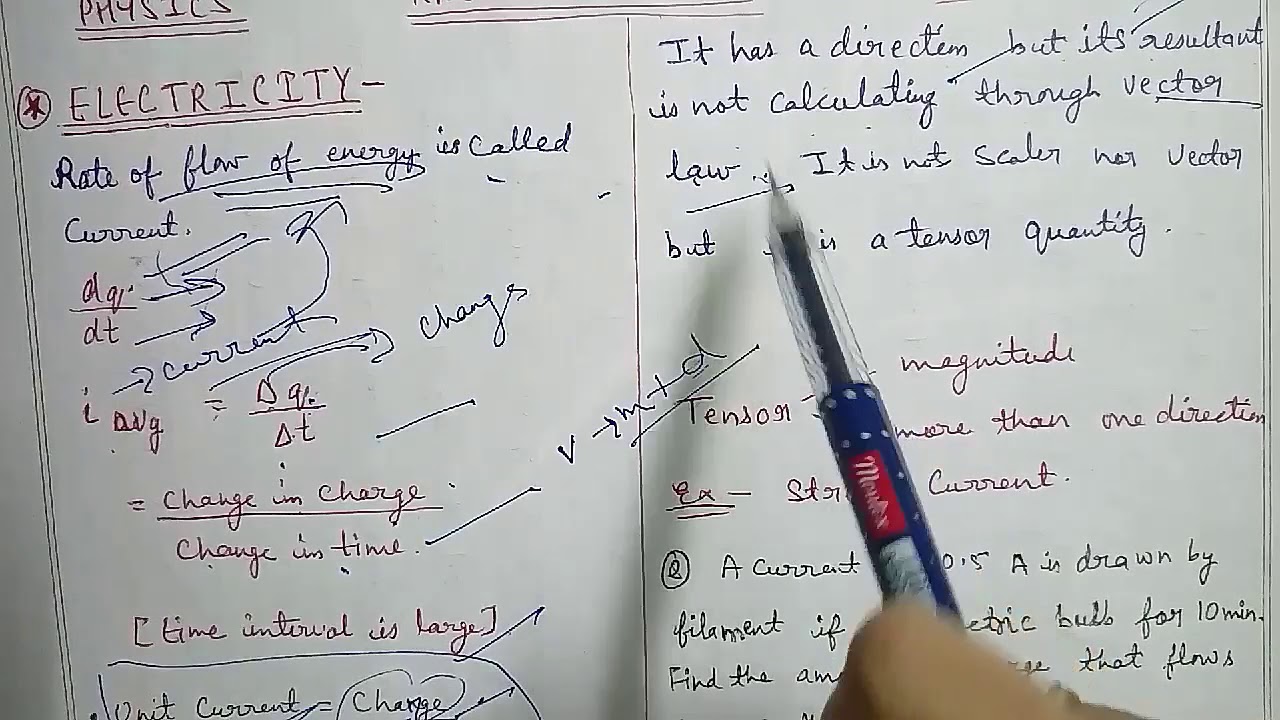 PHYSICS
ELECTRICITY-
Rate of flow of energy is called
Current.
dq
dt
i → current
i avg = Δq
Δt
change
= Change in Charge
Change in time.
[time interval is large]
Unit Current = Charge
It has a direction but its resultant
is not calculating through vector
law. It is not Scaler nor Vector
but is a tensor quantity.
V → m + d
Tensor magnitude
more than one direction
Ex - Current.
Montex
Q A current 0.5 A is drawn by
filament if bulb for 10 min.
Find the that flows